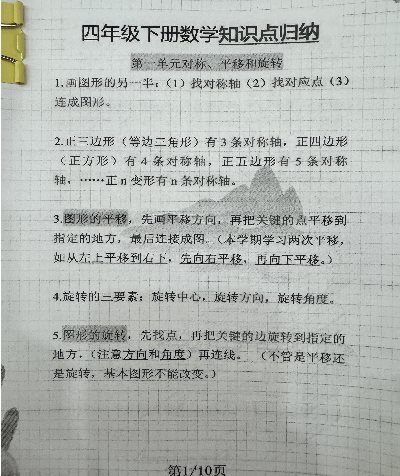 四年级下册数学知识点归纳
第一单元对称、平移和旋转
1.画图形的另一半：（1）找对称轴（2）找对应点（3）
连成图形。
2.正三边形（等边三角形）有3条对称轴，正四边形
（正方形）有4条对称轴，正五边形有5条对称
轴，……正n变形有n条对称轴。
3.图形的平移，先画平移方向，再把关键的点平移到
指定的地方，最后连接成图.（本学期学习两次平移，
如从左上平移到右下，先向右平移，再向下平移。）
4.旋转的三要素：旋转中心，旋转方向，旋转角度。
5.图形的旋转，先找点，再把关键的边旋转到指定的
地方，（注意方向和角度）再连线。（不管是平移还
是旋转，基本图形不能改变。）
第1/10页